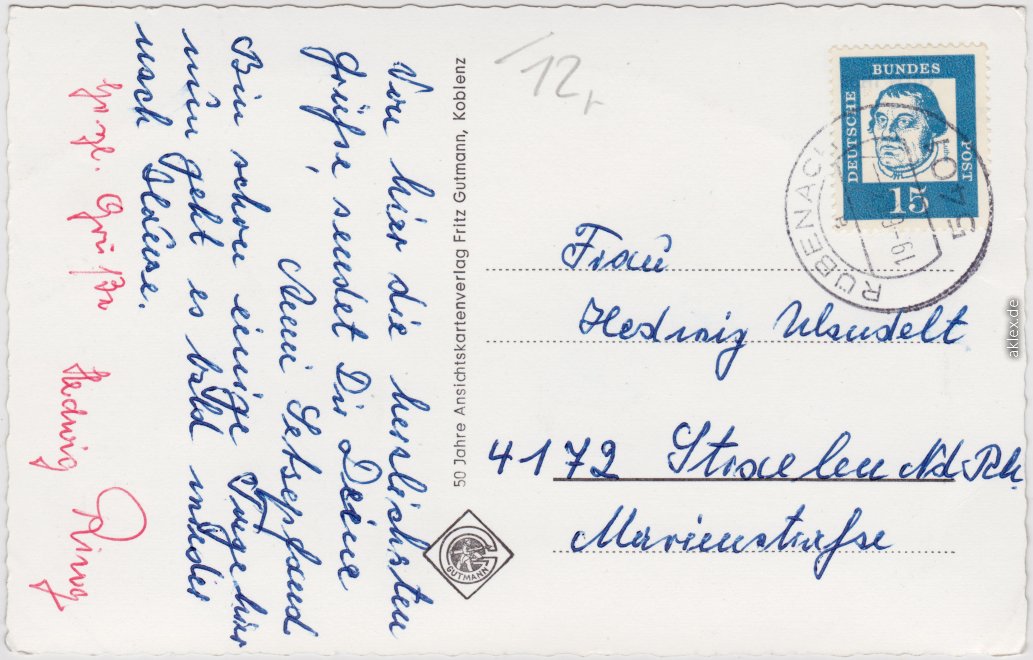 Von hier die herzlichsten
Grüße sendet Dir Deine
Anni
Bin schon einige Tage hier
nun geht es bald wieder
nach Hause.
Herzl. Grüße
Hedwig
50 Jahre Ansichtskartenverlag Fritz Gutmann, Koblenz
GUTMANN
12,
DEUTSCHE BUNDES POST
15
RÜBENACH
5401
Frau
Hedwig Wandelt
4172 Straelen Ndrh
Marienstraße
aklex.de